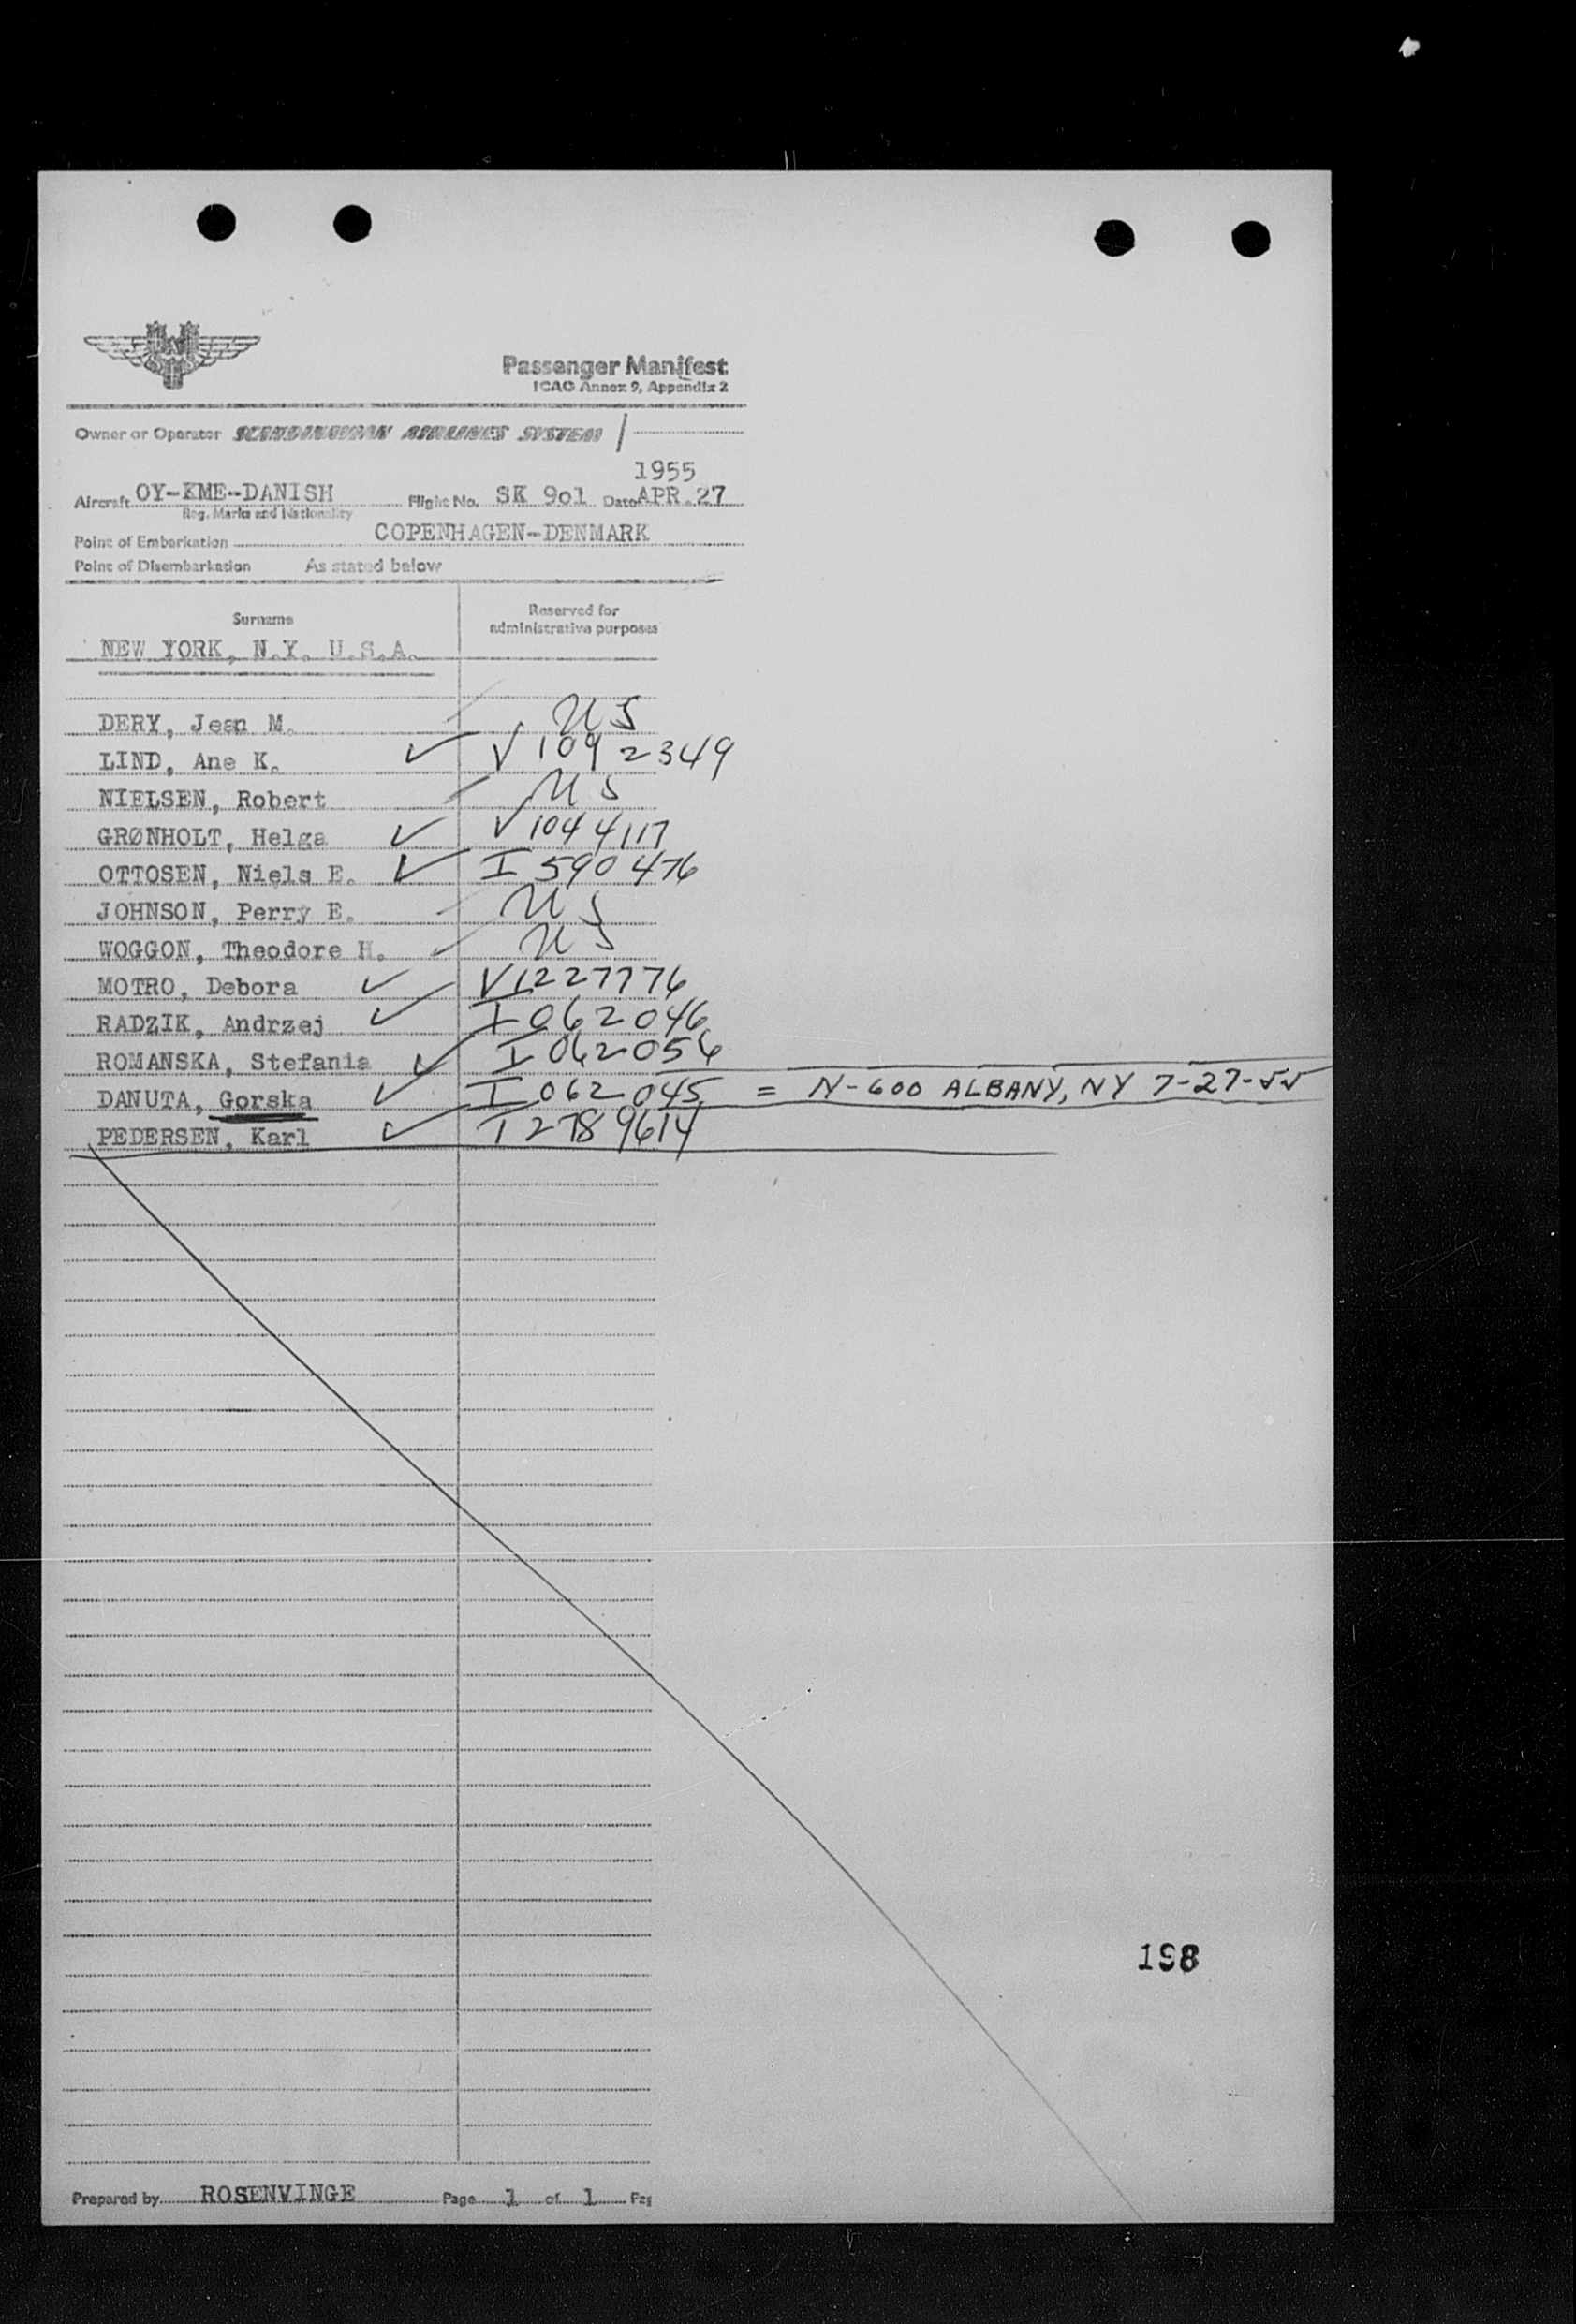 Passenger Manifest
ICAO Annex 9, Appendix 2
Owner or Operator SCANDINAVIAN AIRLINES SYSTEM /
1955
Aircraft OY-KME-DANISH Flight No. SK 9o1 Date APR.27
Reg. Marks and Nationality
Point of Embarkation COPENHAGEN-DENMARK
Point of Disembarkation As stated below
Surname Reserved for administrative purposes
NEW YORK, N.Y. U.S.A.
DERY, Jean M. US
LIND, Ane K. ✓ V 1092349
NIELSEN, Robert US
GRØNHOLT, Helga ✓ V 1044117
OTTOSEN, Niels E. ✓ I 590476
JOHNSON, Perry E. US
WOGGON, Theodore H. US
MOTRO, Debora ✓ V1227776
RADZIK, Andrzej ✓ I 062046
ROMANSKA, Stefania ✓ I 062056
DANUTA, Gorska ✓ I 062045 = N-600 ALBANY, NY 7-27-55
PEDERSEN, Karl ✓ I 2789614
198
Prepared by ROSENVINGE Page 1 of 1